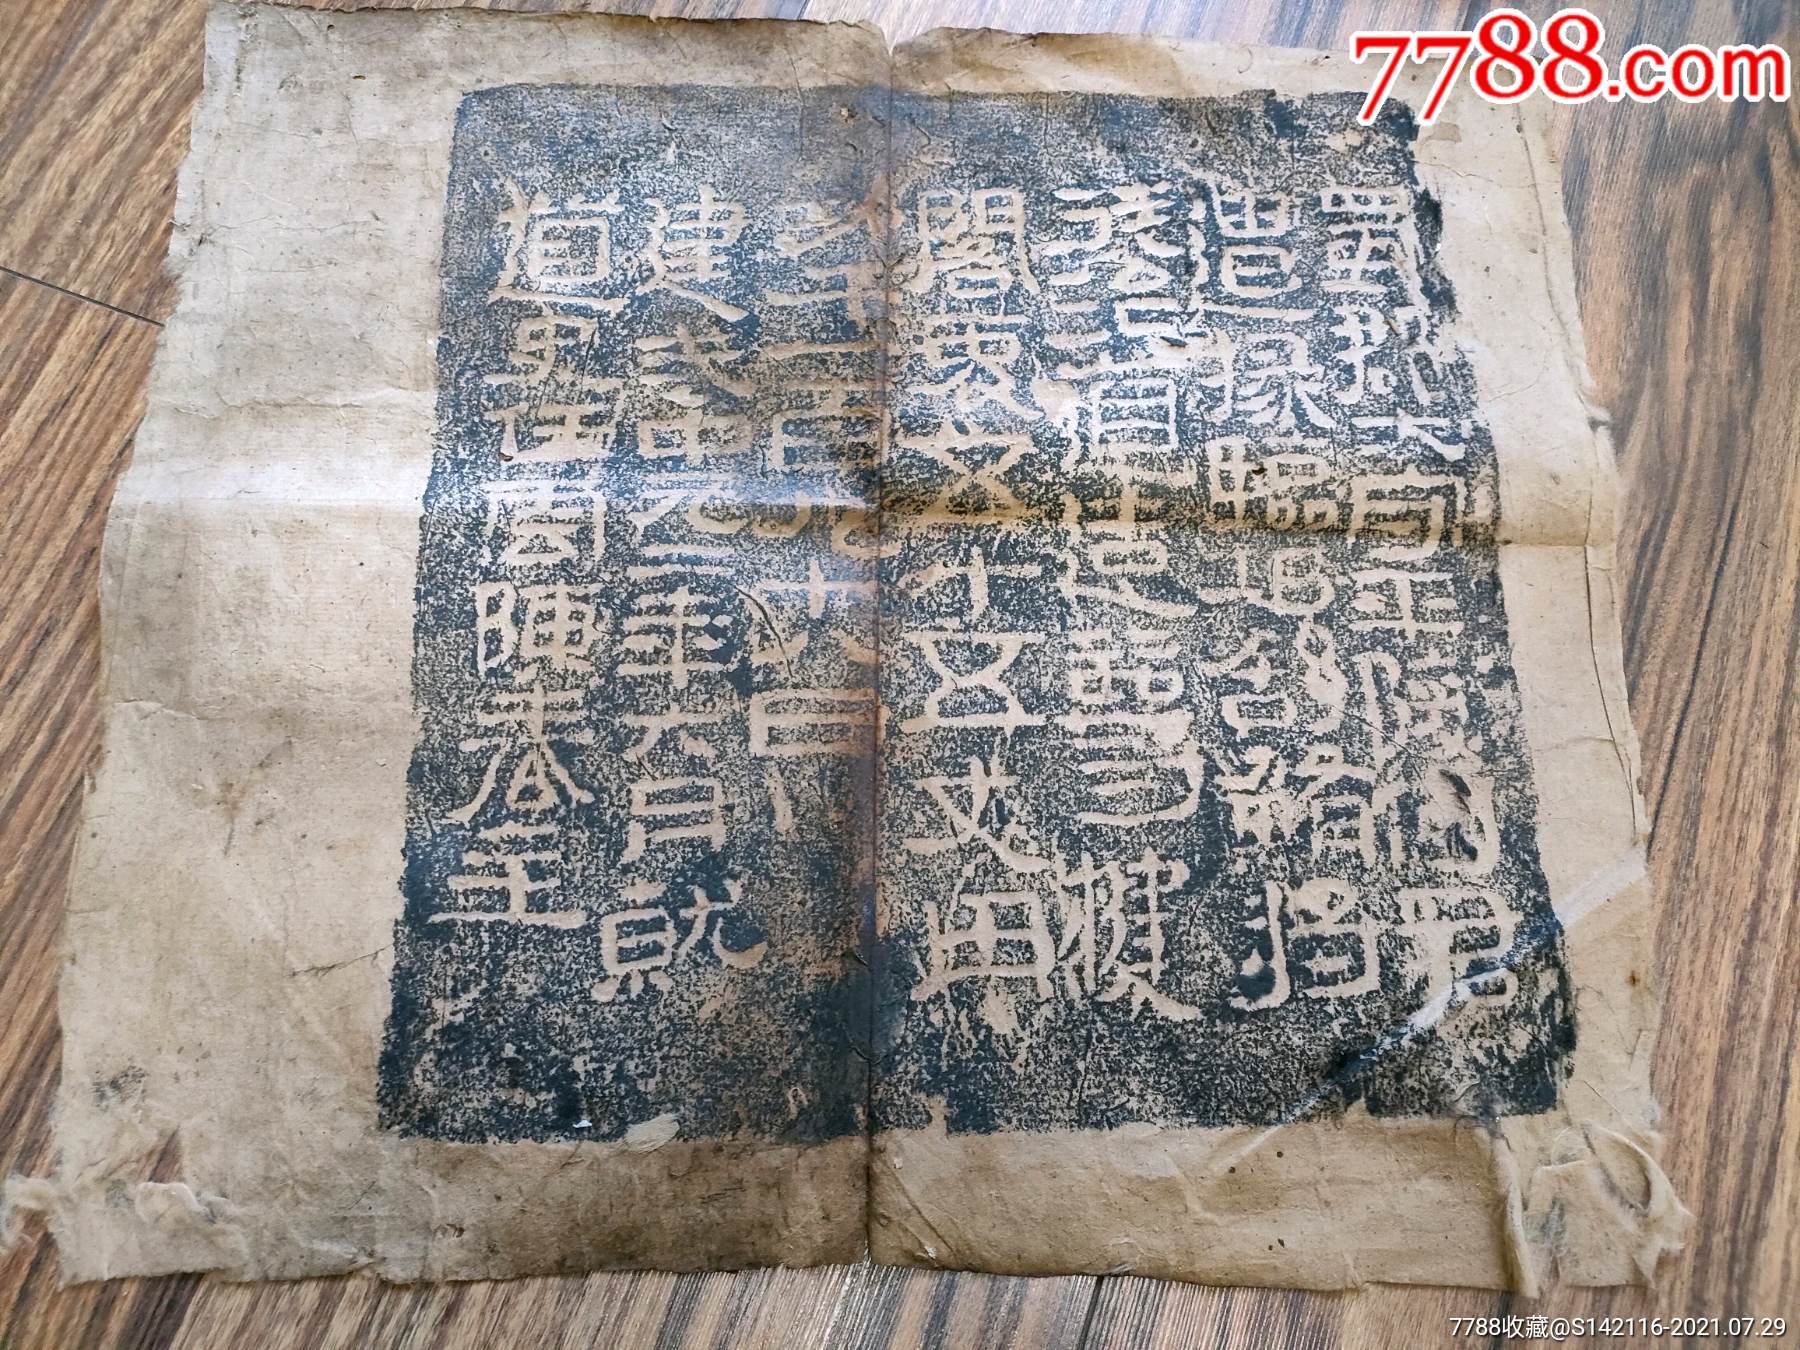 7788.com
蜀郡大守平陵何君
遣掾臨邛舒鮪將
徒治道造尊楗
閣袤五十五丈用
功千一百九十八日
建武中元二年六月就
道史任雲陳春主
7788收藏@S142116-2021.07.29